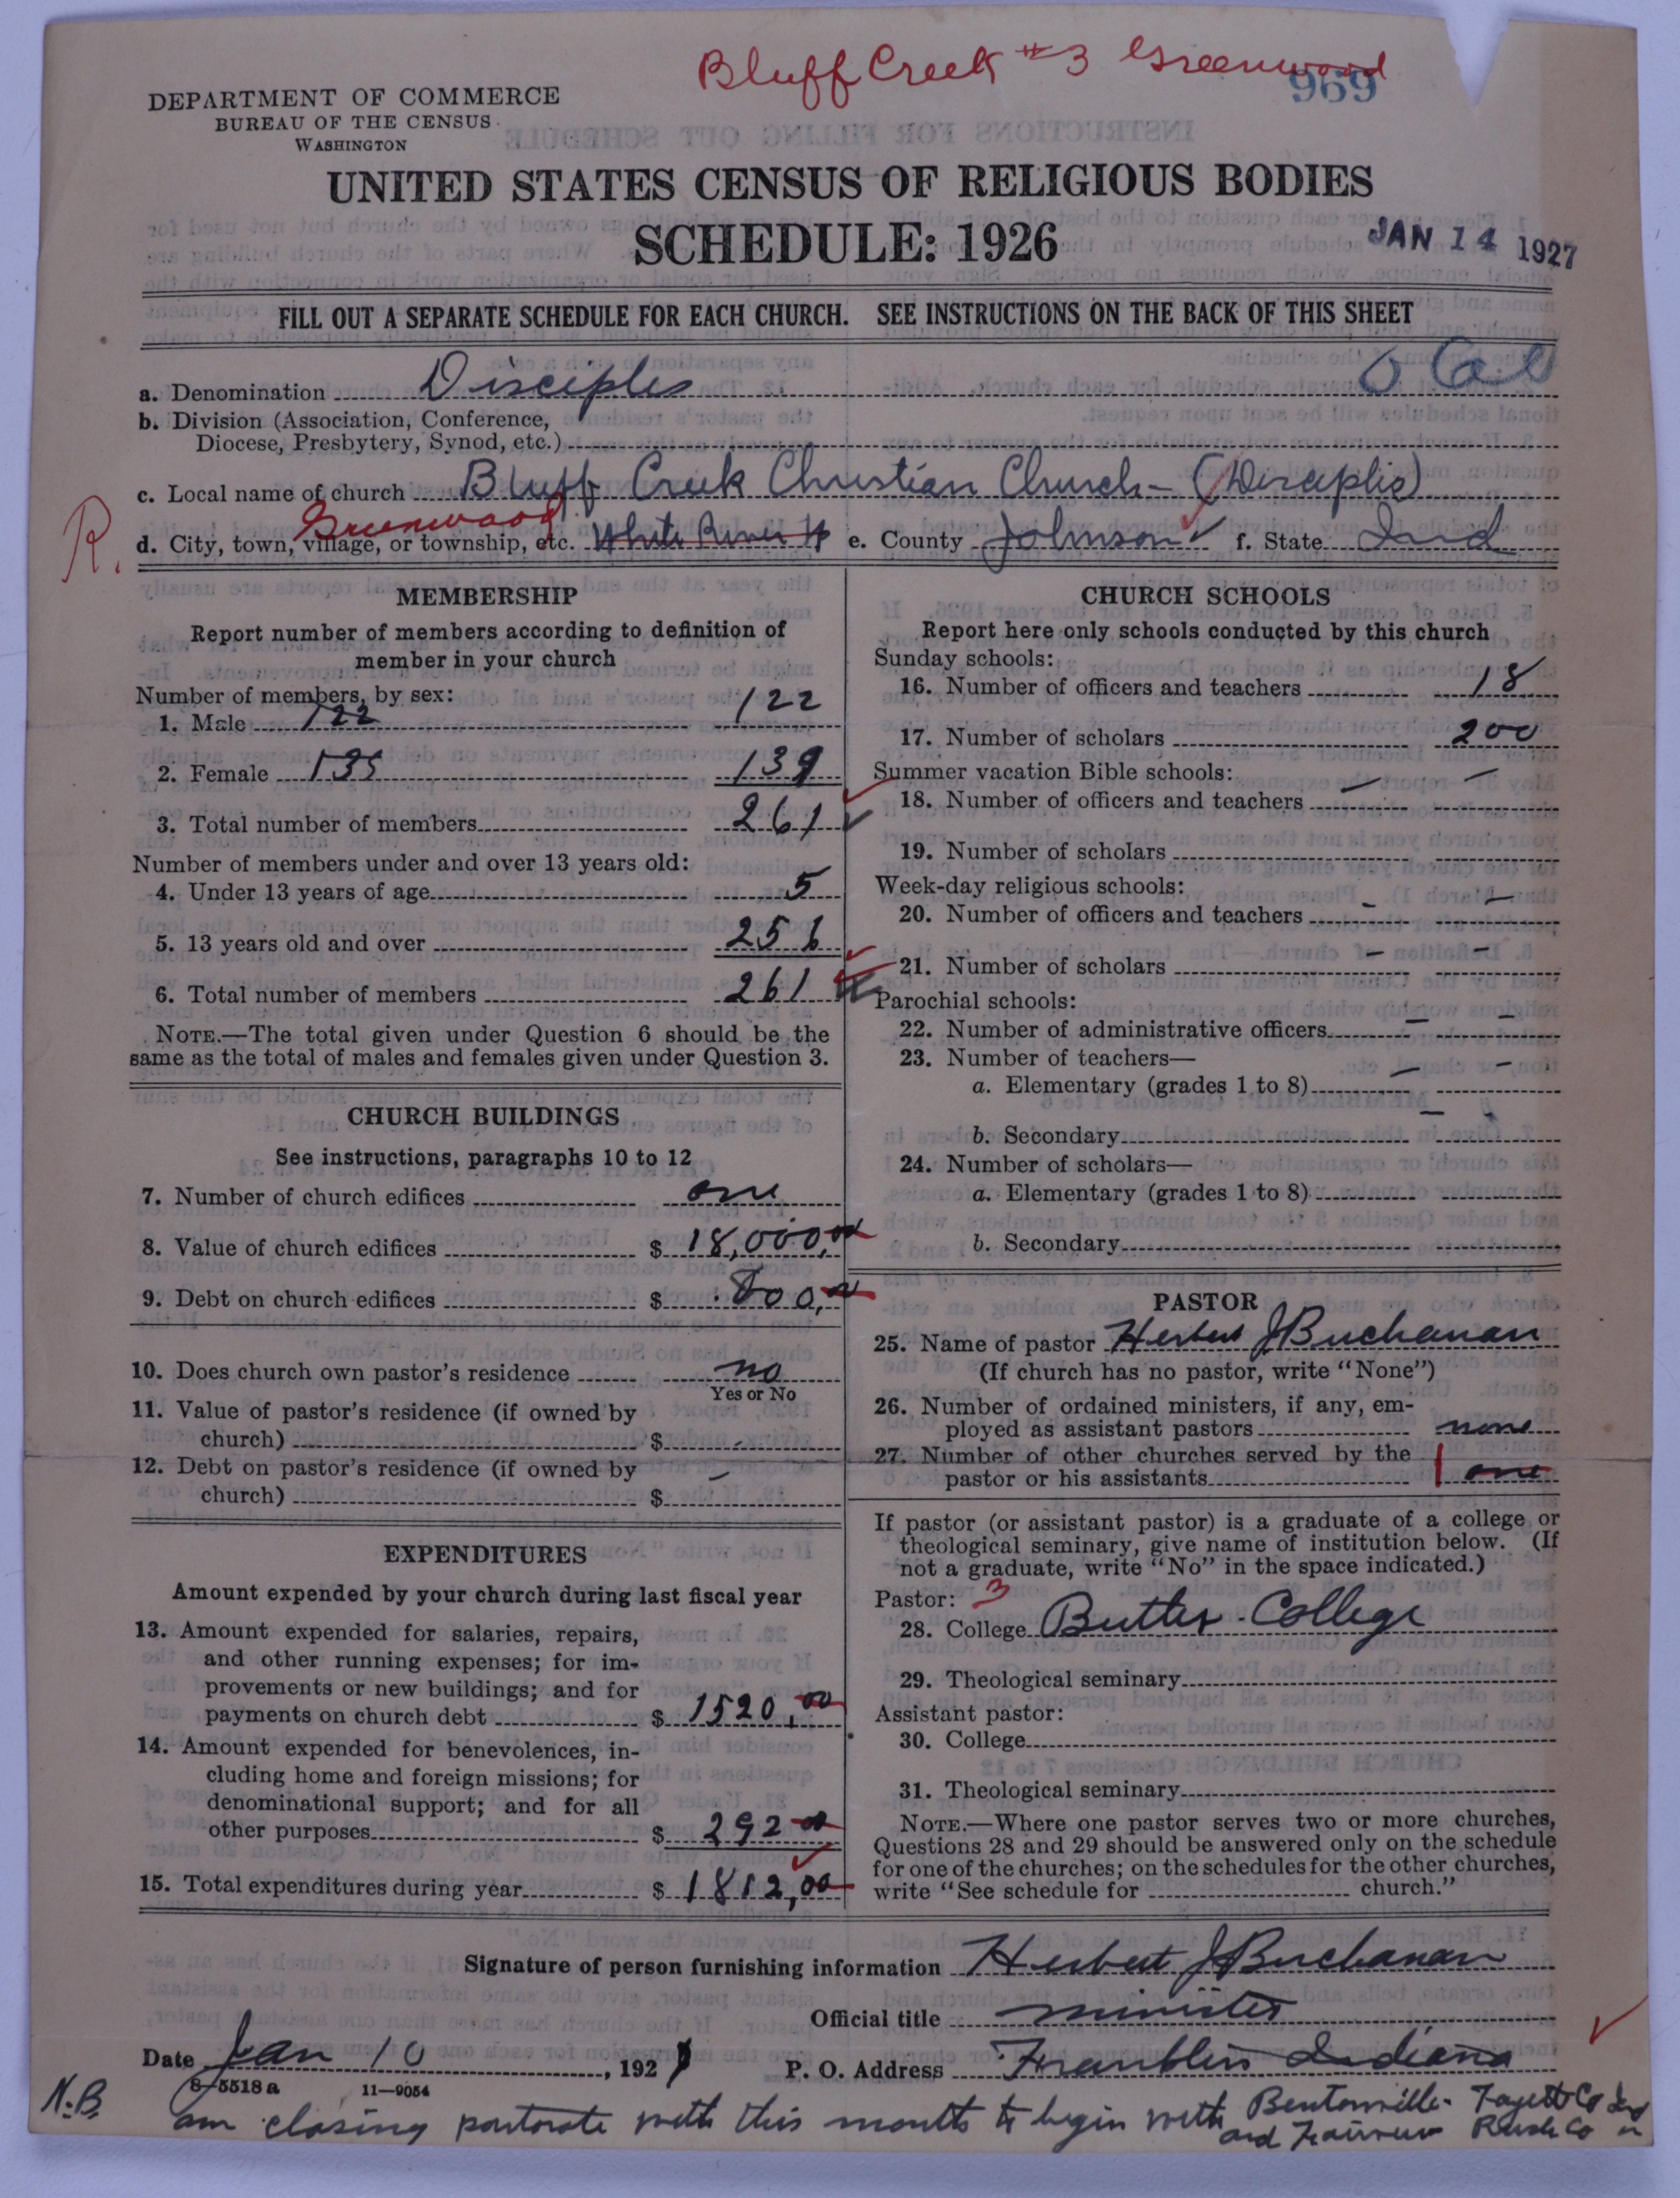 Bluff Creek #3 Greenwood
969
DEPARTMENT OF COMMERCE
BUREAU OF THE CENSUS
WASHINGTON
UNITED STATES CENSUS OF RELIGIOUS BODIES
SCHEDULE: 1926
JAN 14 1927
FILL OUT A SEPARATE SCHEDULE FOR EACH CHURCH. SEE INSTRUCTIONS ON THE BACK OF THIS SHEET
a. Denomination Disciples
b. Division (Association, Conference,
Diocese, Presbytery, Synod, etc.)
c. Local name of church Bluff Creek Christian Church - (Disciples)
R. Greenwood
d. City, town, village, or township, etc. White River e. County Johnson f. State Ind
MEMBERSHIP
Report number of members according to definition of
member in your church
Number of members, by sex:
1. Male 122 122
2. Female 139
3. Total number of members 261
Number of members under and over 13 years old:
4. Under 13 years of age 5
5. 13 years old and over 256
6. Total number of members 261
NOTE.—The total given under Question 6 should be the
same as the total of males and females given under Question 3.
CHURCH BUILDINGS
See instructions, paragraphs 10 to 12
7. Number of church edifices one
8. Value of church edifices $ 18,000,00
9. Debt on church edifices $ 800,00
10. Does church own pastor's residence no
Yes or No
11. Value of pastor's residence (if owned by
church) $ -
12. Debt on pastor's residence (if owned by
church) $ -
EXPENDITURES
Amount expended by your church during last fiscal year
13. Amount expended for salaries, repairs,
and other running expenses; for im-
provements or new buildings; and for
payments on church debt $ 1520,00
14. Amount expended for benevolences, in-
cluding home and foreign missions; for
denominational support; and for all
other purposes $ 292 00
15. Total expenditures during year $ 1812,00
CHURCH SCHOOLS
Report here only schools conducted by this church
Sunday schools:
16. Number of officers and teachers 18
17. Number of scholars 200
Summer vacation Bible schools:
18. Number of officers and teachers - -
19. Number of scholars
Week-day religious schools:
20. Number of officers and teachers - -
21. Number of scholars - -
Parochial schools:
22. Number of administrative officers - -
23. Number of teachers—
a. Elementary (grades 1 to 8) - -
b. Secondary - -
24. Number of scholars—
a. Elementary (grades 1 to 8)
b. Secondary
PASTOR
25. Name of pastor Herbert J Buchanan
(If church has no pastor, write "None")
26. Number of ordained ministers, if any, em-
ployed as assistant pastors none
27. Number of other churches served by the
pastor or his assistants 1 one
If pastor (or assistant pastor) is a graduate of a college or
theological seminary, give name of institution below. (If
not a graduate, write "No" in the space indicated.)
Pastor: 3
28. College Butler College
29. Theological seminary
Assistant pastor:
30. College
31. Theological seminary
NOTE.—Where one pastor serves two or more churches,
Questions 28 and 29 should be answered only on the schedule
for one of the churches; on the schedules for the other churches,
write "See schedule for church."
Signature of person furnishing information Herbert J Buchanan
Official title minister
Date Jan 10, 1927 P. O. Address Franklin Indiana
8-5518 a 11-9054
N.B. am closing pastorate with this month to begin with Bentonville - Fayette Co Ind
and Fairview Rush Co